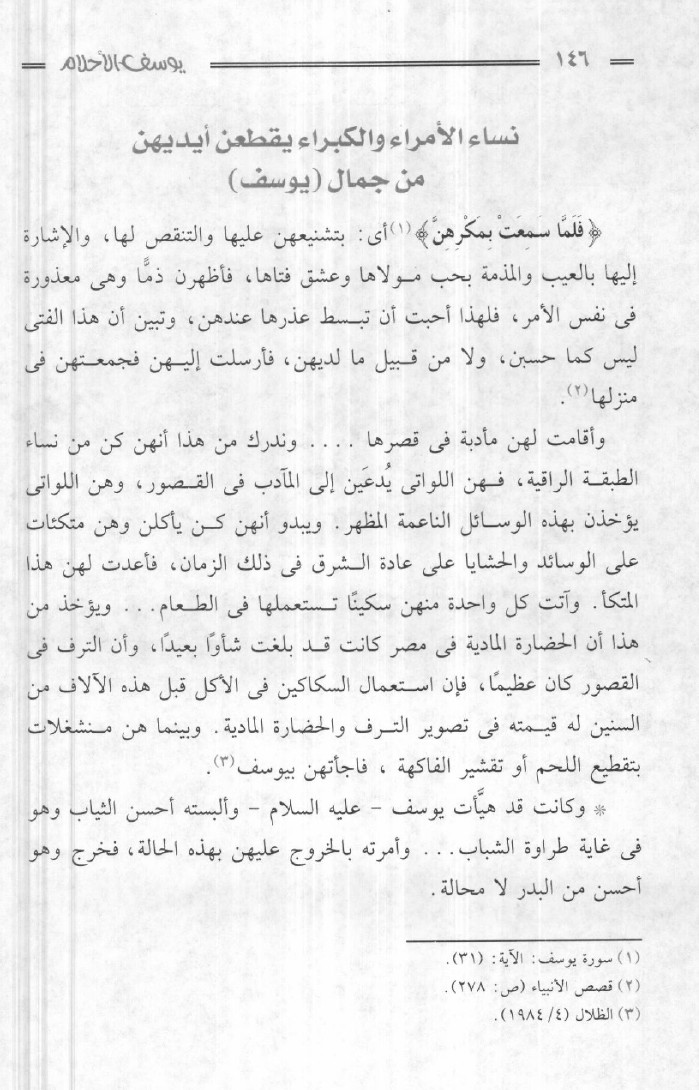 ١٤٦ يوسف الأحلام
نساء الأمراء والكبراء يقطعن أيديهن
من جمال (يوسف)
﴿فَلَمَّا سَمِعَتْ بِمَكْرِهِنَّ﴾(١) أى: بتشنيعهن عليها والتنقص لها، والإشارة
إليها بالعيب والمذمة بحب مولاها وعشق فتاها، فأظهرن ذمًّا وهى معذورة
فى نفس الأمر، فلهذا أحبت أن تبسط عذرها عندهن، وتبين أن هذا الفتى
ليس كما حسبن، ولا من قبيل ما لديهن، فأرسلت إليهن فجمعتهن فى
منزلها(٢).
وأقامت لهن مأدبة فى قصرها .... وندرك من هذا أنهن كن من نساء
الطبقة الراقية، فهن اللواتى يُدعَين إلى المآدب فى القصور، وهن اللواتى
يؤخذن بهذه الوسائل الناعمة المظهر. ويبدو أنهن كن يأكلن وهن متكئات
على الوسائد والحشايا على عادة الشرق فى ذلك الزمان، فأعدت لهن هذا
المتكأ. وآتت كل واحدة منهن سكينًا تستعملها فى الطعام... ويؤخذ من
هذا أن الحضارة المادية فى مصر كانت قد بلغت شأوًا بعيدًا، وأن الترف فى
القصور كان عظيمًا، فإن استعمال السكاكين فى الأكل قبل هذه الآلاف من
السنين له قيمته فى تصوير الترف والحضارة المادية. وبينما هن منشغلات
بتقطيع اللحم أو تقشير الفاكهة ، فاجأتهن بيوسف(٣).
* وكانت قد هيَّأت يوسف - عليه السلام - وألبسته أحسن الثياب وهو
فى غاية طراوة الشباب... وأمرته بالخروج عليهن بهذه الحالة، فخرج وهو
أحسن من البدر لا محالة.
(١) سورة يوسف: الآية: (٣١).
(٢) قصص الأنبياء (ص: ٢٧٨).
(٣) الظلال (٤/ ١٩٨٤).